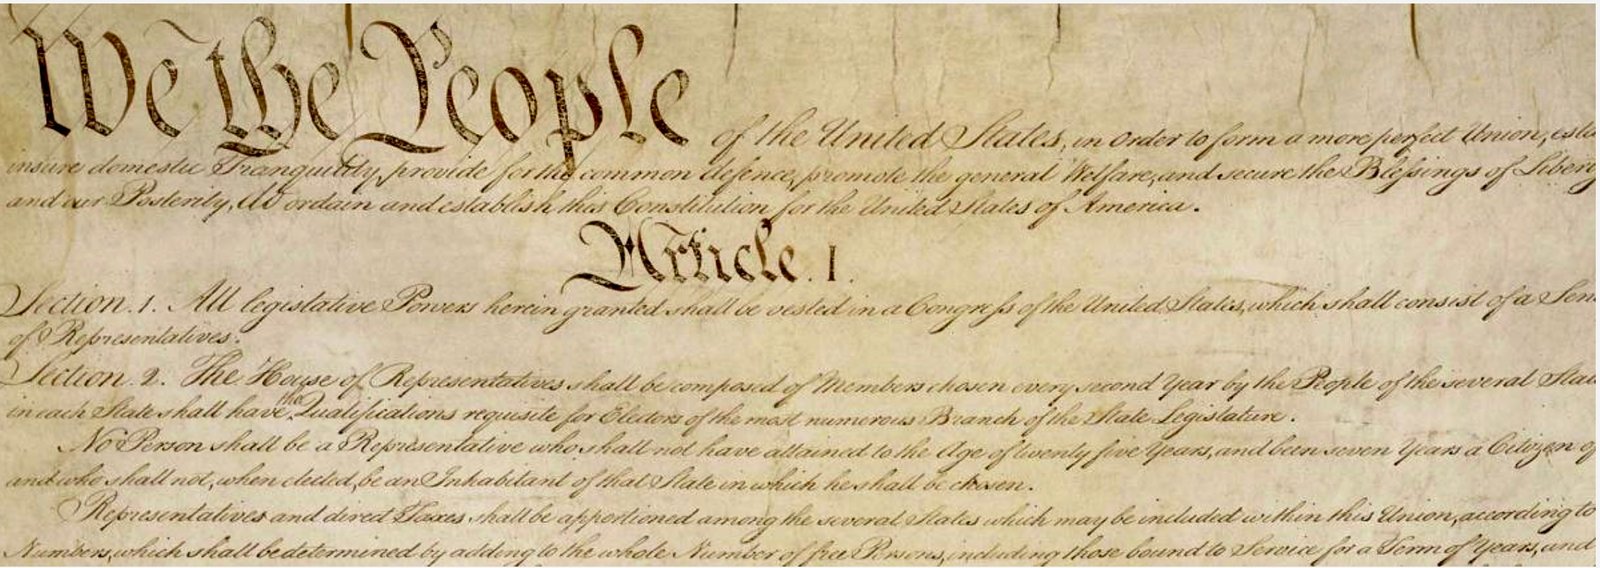 We the People of the United States, in Order to form a more perfect Union, esta
insure domestic Tranquility, provide for the common defence, promote the general Welfare, and secure the Blessings of Liberty
and our Posterity, do ordain and establish this Constitution for the United States of America.
Article. I.
Section. 1. All legislative Powers herein granted shall be vested in a Congress of the United States, which shall consist of a Sen
of Representatives.
Section. 2. The House of Representatives shall be composed of Members chosen every second Year by the People of the several Stat
in each State shall have the Qualifications requisite for Electors of the most numerous Branch of the State Legislature.
No Person shall be a Representative who shall not have attained to the Age of twenty five Years, and been seven Years a Citizen of
and who shall not, when elected, be an Inhabitant of that State in which he shall be chosen.
Representatives and direct Taxes shall be apportioned among the several States which may be included within this Union, according to
Numbers, which shall be determined by adding to the whole Number of free Persons, including those bound to Service for a Term of Years, and